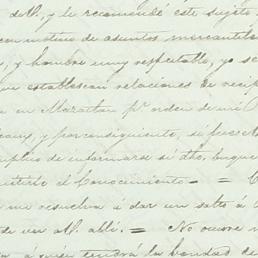 de V., y le recomendé este sujeto
con motivo de asuntos mercantile
, y hombre muy respetable, yo se
que establescan relaciones de recip
en Mazatlan pr. orden de mi
y por consiguiente, si
de informarse si dho. buque
el Conocimiento. =
me resuelva á dar un salto á
de un allí. = No ocurre
á quien tendrá la bondad de